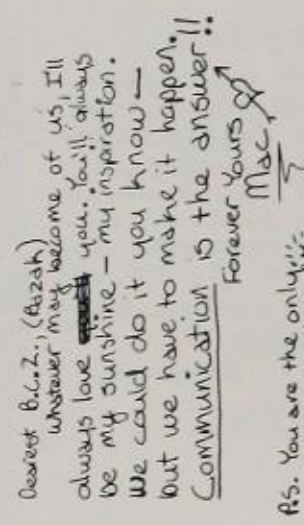 Dearest B.C.Z., (Pazak)
Whatever may become of us, I'll
always love you. You'll always
be my sunshine – my inspiration.
We could do it you know –
but we have to make it happen.
Communication is the answer!!
Forever Yours
Mac
P.S. You are the only...